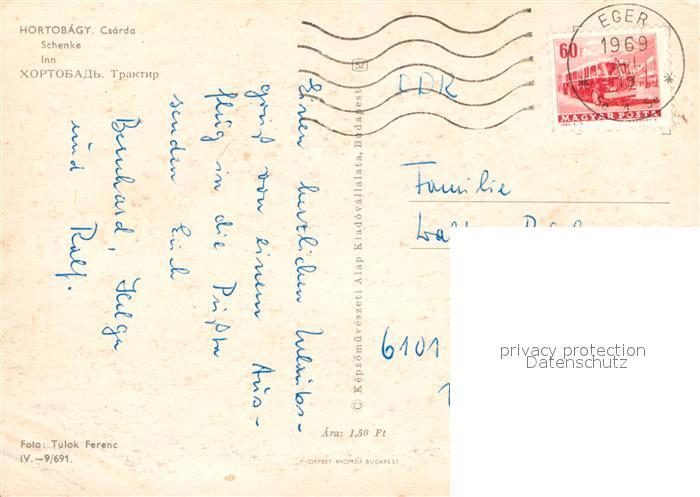 HORTOBÁGY. Csárda
Schenke
Inn
ХОРТОБАДЬ. Трактир
Einen herzlichen Urlaubs-
gruß von einem Aus-
flug in die Pußta
senden Euch
Bernhard, Helga
und Ralf.
Foto: Tulok Ferenc
IV.–9/691.
© Képzőművészeti Alap Kiadóvállalata, Budapest
Ára: 1,50 Ft
OFFSET-NYOMDA BUDAPEST
EGER
1969
60f
MAGYAR POSTA
DDR
Familie
6101
privacy protection
Datenschutz